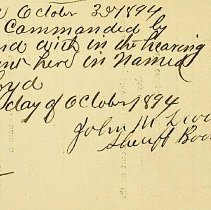 October 3rd 1894
Commanded by
and with in the hearing
here in Named
oyd
day of October 1894
John M
Sheriff Boo